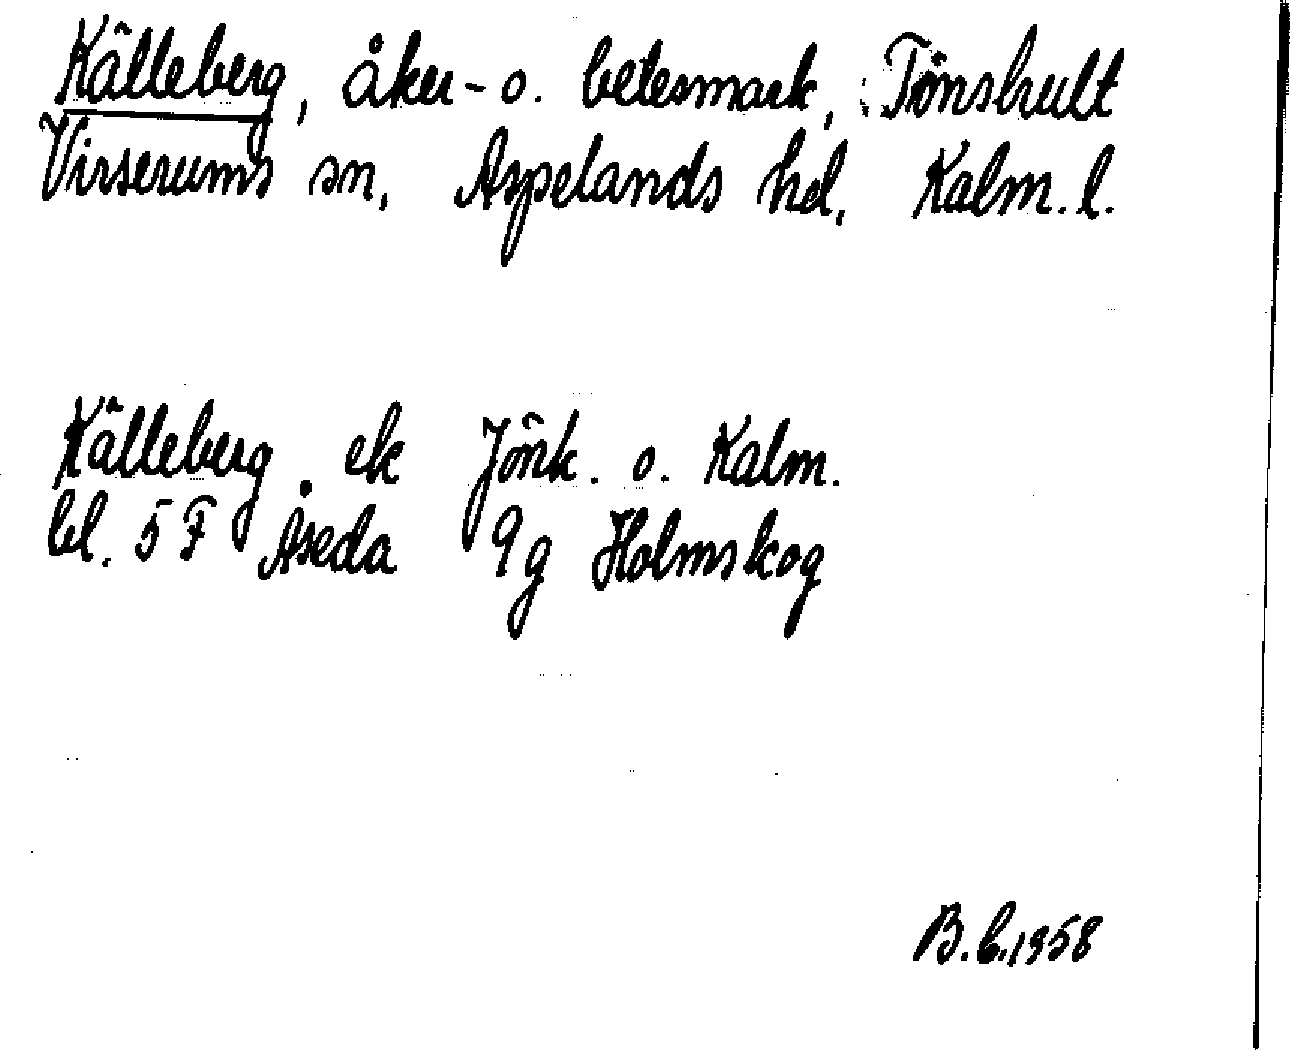 Källeberg, åker- o. betesmark, Tönshult
Virserums sn, Aspelands hd, Kalm. l.
Källeberg ek Jönk. o. Kalm.
bl. 5 F Åseda 9g Holmskog
B.L.1958